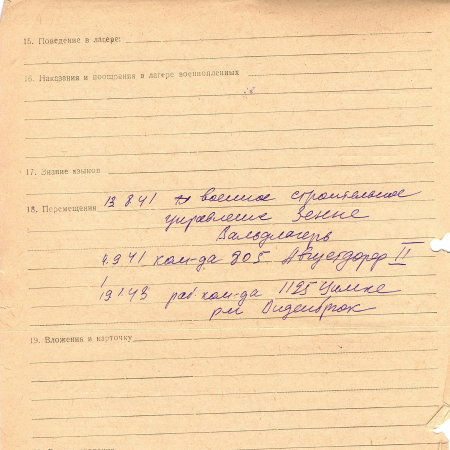 15. Поведение в лагере:
16. Наказания и поощрения в лагере военнопленных
17. Знание языков
18. Перемещения 13 8 41 военное строительное
управление Зенне
Вальдлагерь
4.9 41 ком-да 205 Августдорф II
19 1.43 раб. ком-да 1125
рн Виденбрюк
19. Вложения в карточку